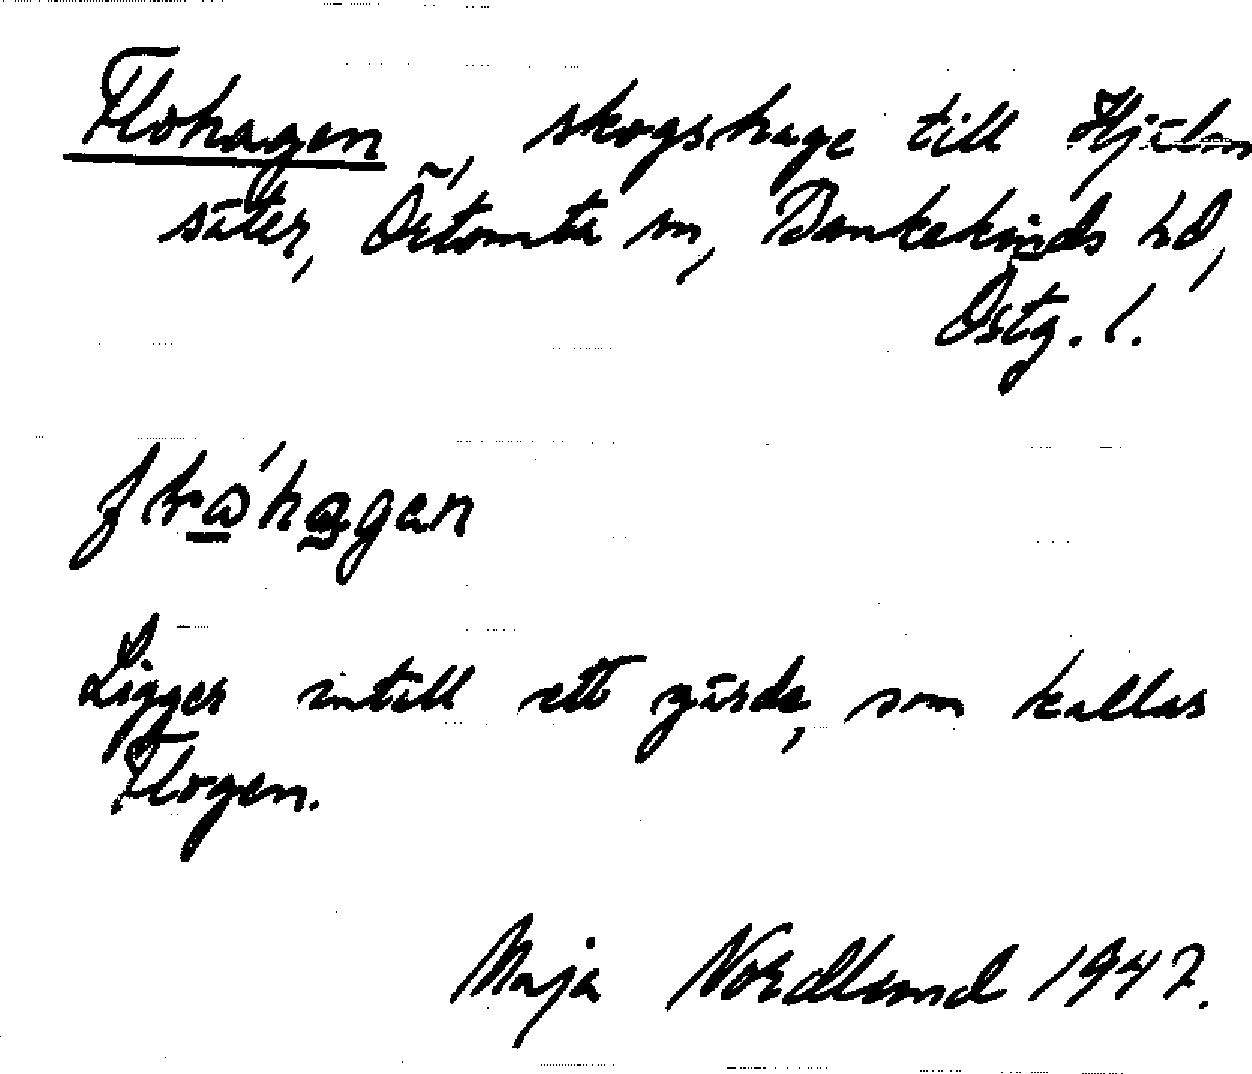 Flohagen, skogshage till Hjälm
säter, Örtomta sn, Bankekinds hd,
Östg. l.
Ligger intill ett gärde, som kallas
Flogen.
Maja Nordlund 1947.